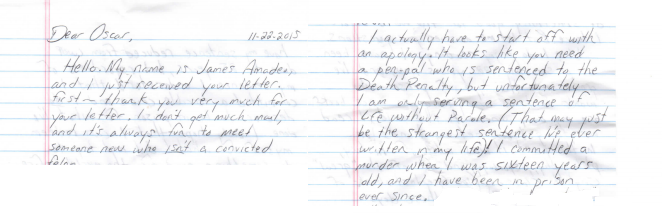 Dear Oscar, 11-22-2015
Hello. My name is James Amadeo,
and I just received your letter.
first— thank you very much for
your letter. I don't get much mail,
and it's always fun to meet
someone new who isn't a convicted
I actually have to start off with
an apology. It looks like you need
a pen-pal who is sentenced to the
Death Penalty, but unfortunately
I am only serving a sentence of
Life without Parole. (That may just
be the strangest sentence I've ever
written in my life)! I committed a
murder when I was sixteen years
old, and I have been in prison
ever since.